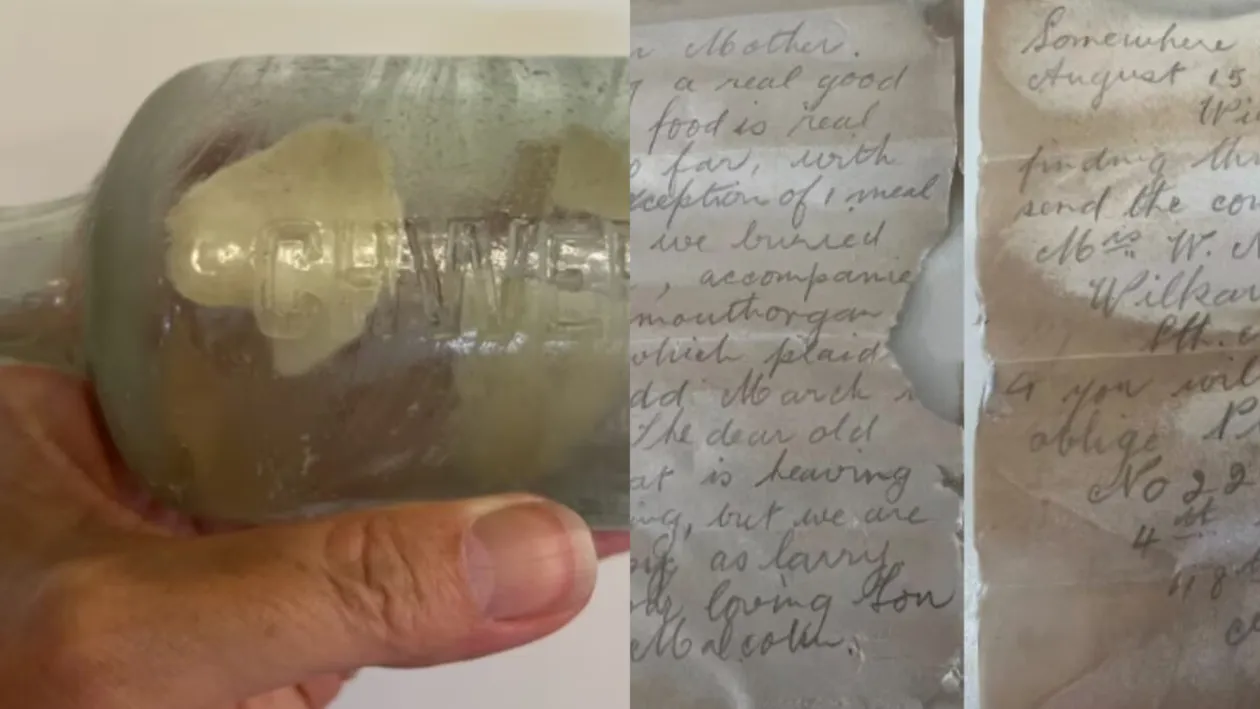 SCHWE
Mother.
a real good
food is real
far, with
ception of 1 meal
we buried
, accompanie
mouthorgan
which plaid
dd March
The dear old
at is heaving
ing, but we are
as larry
loving Son
Malcolm.
Somewhere
August 15
Wi
finding th
send the co
Mrs W.
Wilka
Pth.
& you wil
oblige P
No 2 2
4th
48